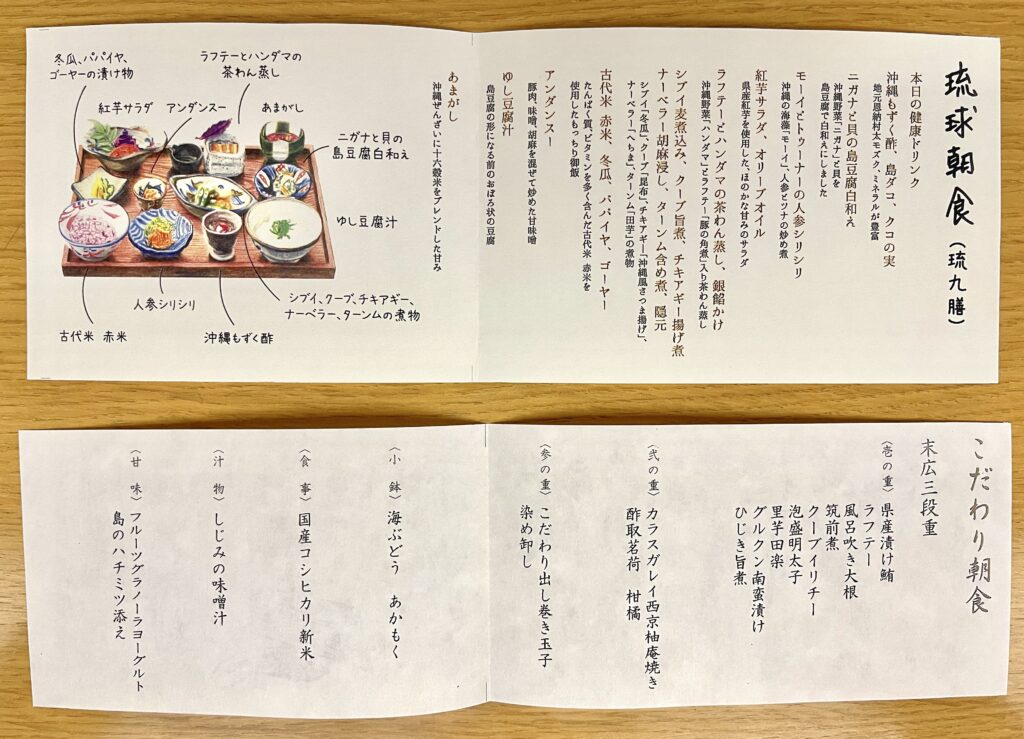 琉球朝食（琉九膳）
本日の健康ドリンク
沖縄もずく酢、島ダコ、クコの実
地元恩納村太モズク、ミネラルが豊富
ニガナと貝の島豆腐白和え
沖縄野菜「ニガナ」と貝を
島豆腐で白和えにしました
モーイとトゥーナーの人参シリシリ
沖縄の海藻「モーイ」、人参とツナの炒め煮
紅芋サラダ、オリーブオイル
県産紅芋を使用した、ほのかな甘みのサラダ
ラフテーとハンダマの茶わん蒸し、銀餡かけ
沖縄野菜「ハンダマ」とラフテー「豚の角煮」入り茶わん蒸し
シブイ麦煮込み、クーブ旨煮、チキアギー揚げ煮
ナーベラー胡麻浸し、ターンム含め煮、隠元
シブイ「冬瓜」、クーブ「昆布」、チキアギー「沖縄風さつま揚げ」、
ナーベラー「へちま」、ターンム「田芋」の煮物
古代米 赤米、冬瓜、パパイヤ、ゴーヤー
たんぱく質、ビタミンを多く含んだ古代米 赤米を
使用したもっちり御飯
アンダンスー
豚肉、味噌、胡麻を混ぜて炒めた甘味噌
ゆし豆腐汁
島豆腐の形になる前のおぼろ状の豆腐
あまがし
沖縄ぜんざいに十六穀米をブレンドした甘み
冬瓜、パパイヤ、
ゴーヤーの漬け物
ラフテーとハンダマの
茶わん蒸し
紅芋サラダ
アンダンスー
あまがし
ニガナと貝の
島豆腐白和え
ゆし豆腐汁
シブイ、クーブ、チキアギー、
ナーベラー、ターンムの煮物
人参シリシリ
古代米 赤米
沖縄もずく酢
こだわり朝食
末広三段重
〈壱の重〉県産漬け鮪
ラフテー
風呂吹き大根
筑前煮
クーブイリチー
泡盛明太子
里芋田楽
グルクン南蛮漬け
ひじき旨煮
〈弐の重〉カラスガレイ西京柚庵焼き
酢取茗荷 柑橘
〈参の重〉こだわり出し巻き玉子
染め卸し
〈小鉢〉海ぶどう あかもく
〈食事〉国産コシヒカリ新米
〈汁物〉しじみの味噌汁
〈甘味〉フルーツグラノーラヨーグルト
島のハチミツ添え